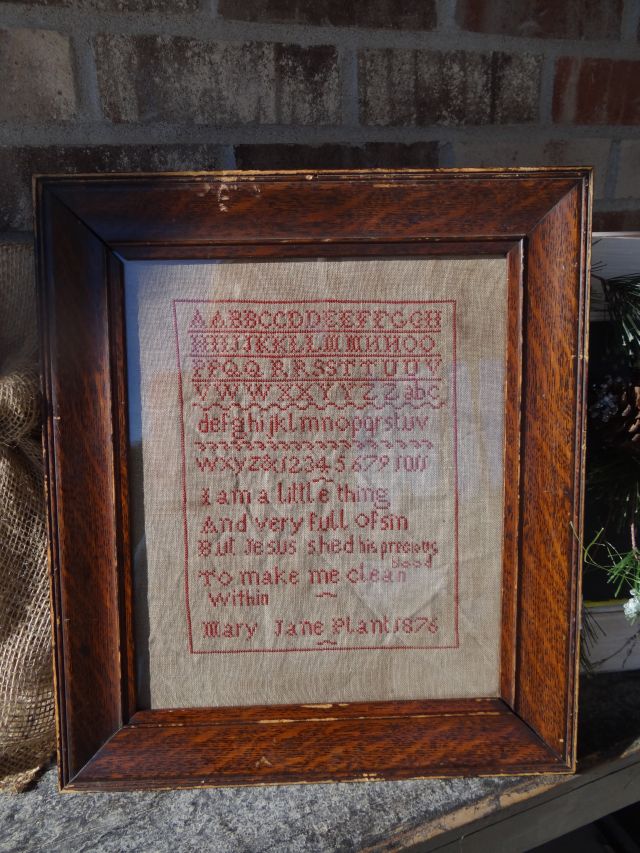 AABBCCDDEEFFGGH
HIIJJKKLLMMNNOO
PPQQRRSSTTUUV
VWWXXYYZZabc
defghijklmnopqrstuv
wxyz&1234567891011
I am a little thing
And very full of sin
But Jesus shed his precious
blood
To make me clean
Within
Mary Jane Plant 1876